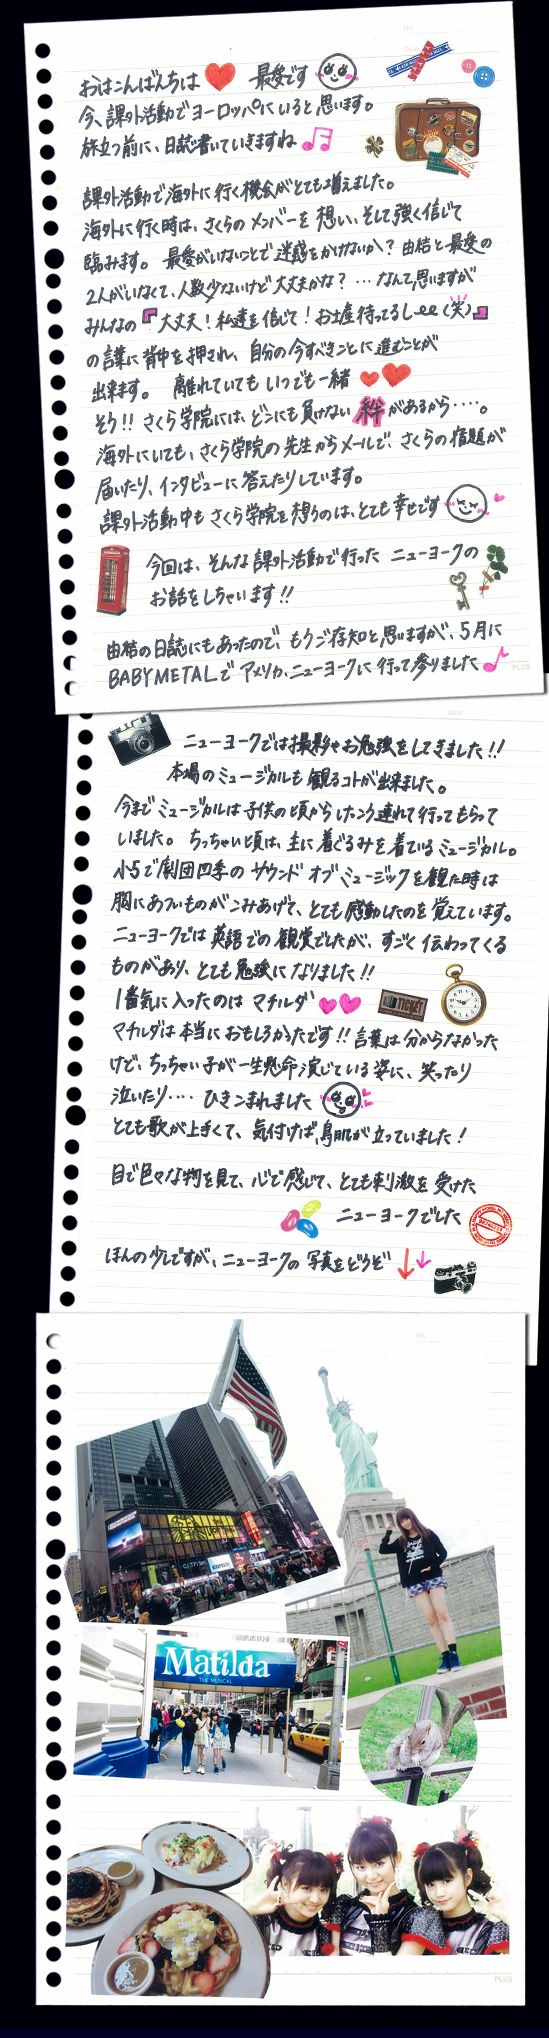 おはこんばんちは 最愛です
今、課外活動でヨーロッパにいると思います。
旅立つ前に、日誌書いていきますね
課外活動で海外に行く機会がとても増えました。
海外に行く時は、さくらのメンバーを想い、そして強く信じて
臨みます。最愛がいないことで迷惑をかけないか？由結と最愛の
2人がいなくて、人数少ないけど大丈夫かな？…なんて思いますが
みんなの『大丈夫！私達を信じて！お土産待ってるしee(笑)』
の言葉に背中を押され、自分の今すべきことに進むことが
出来ます。離れていてもいつでも一緒
そう!!さくら学院には、どこにも負けない絆があるから‥‥。
海外にいても、さくら学院の先生からメールで、さくらの宿題が
届いたり、インタビューに答えたりしています。
課外活動中もさくら学院を想うのは、とても幸せです
今回は、そんな課外活動で行ったニューヨークの
お話をしちゃいます!!
由結の日誌にもあったので、もうご存知と思いますが、5月に
BABYMETALでアメリカ、ニューヨークに行って参りました
PLUS
ニューヨークでは撮影やお勉強をしてきました!!
本場のミュージカルも観るコトが出来ました。
今までミュージカルは子供の頃からけっこう連れて行ってもらって
いました。ちっちゃい頃は、主に着ぐるみを着ているミュージカル。
小5で劇団四季のサウンドオブミュージックを観た時は
胸にあついものがこみあげて、とても感動したのを覚えています。
ニューヨークでは英語での観賞でしたが、すごく伝わってくる
ものがあり、とても勉強になりました!!
1番気に入ったのはマチルダ
TICKET
マチルダは本当におもしろかったです!!言葉は分からなかった
けど、ちっちゃい子が一生懸命演じている姿に、笑ったり
泣いたり‥‥ひきこまれました
とても歌が上手くて、気付けば鳥肌が立っていました！
目で色々な物を見て、心で感じて、とても刺激を受けた
ニューヨークでした
ほんの少しですが、ニューヨークの写真をどうぞ
No.
Matilda
THE MUSICAL
PLUS